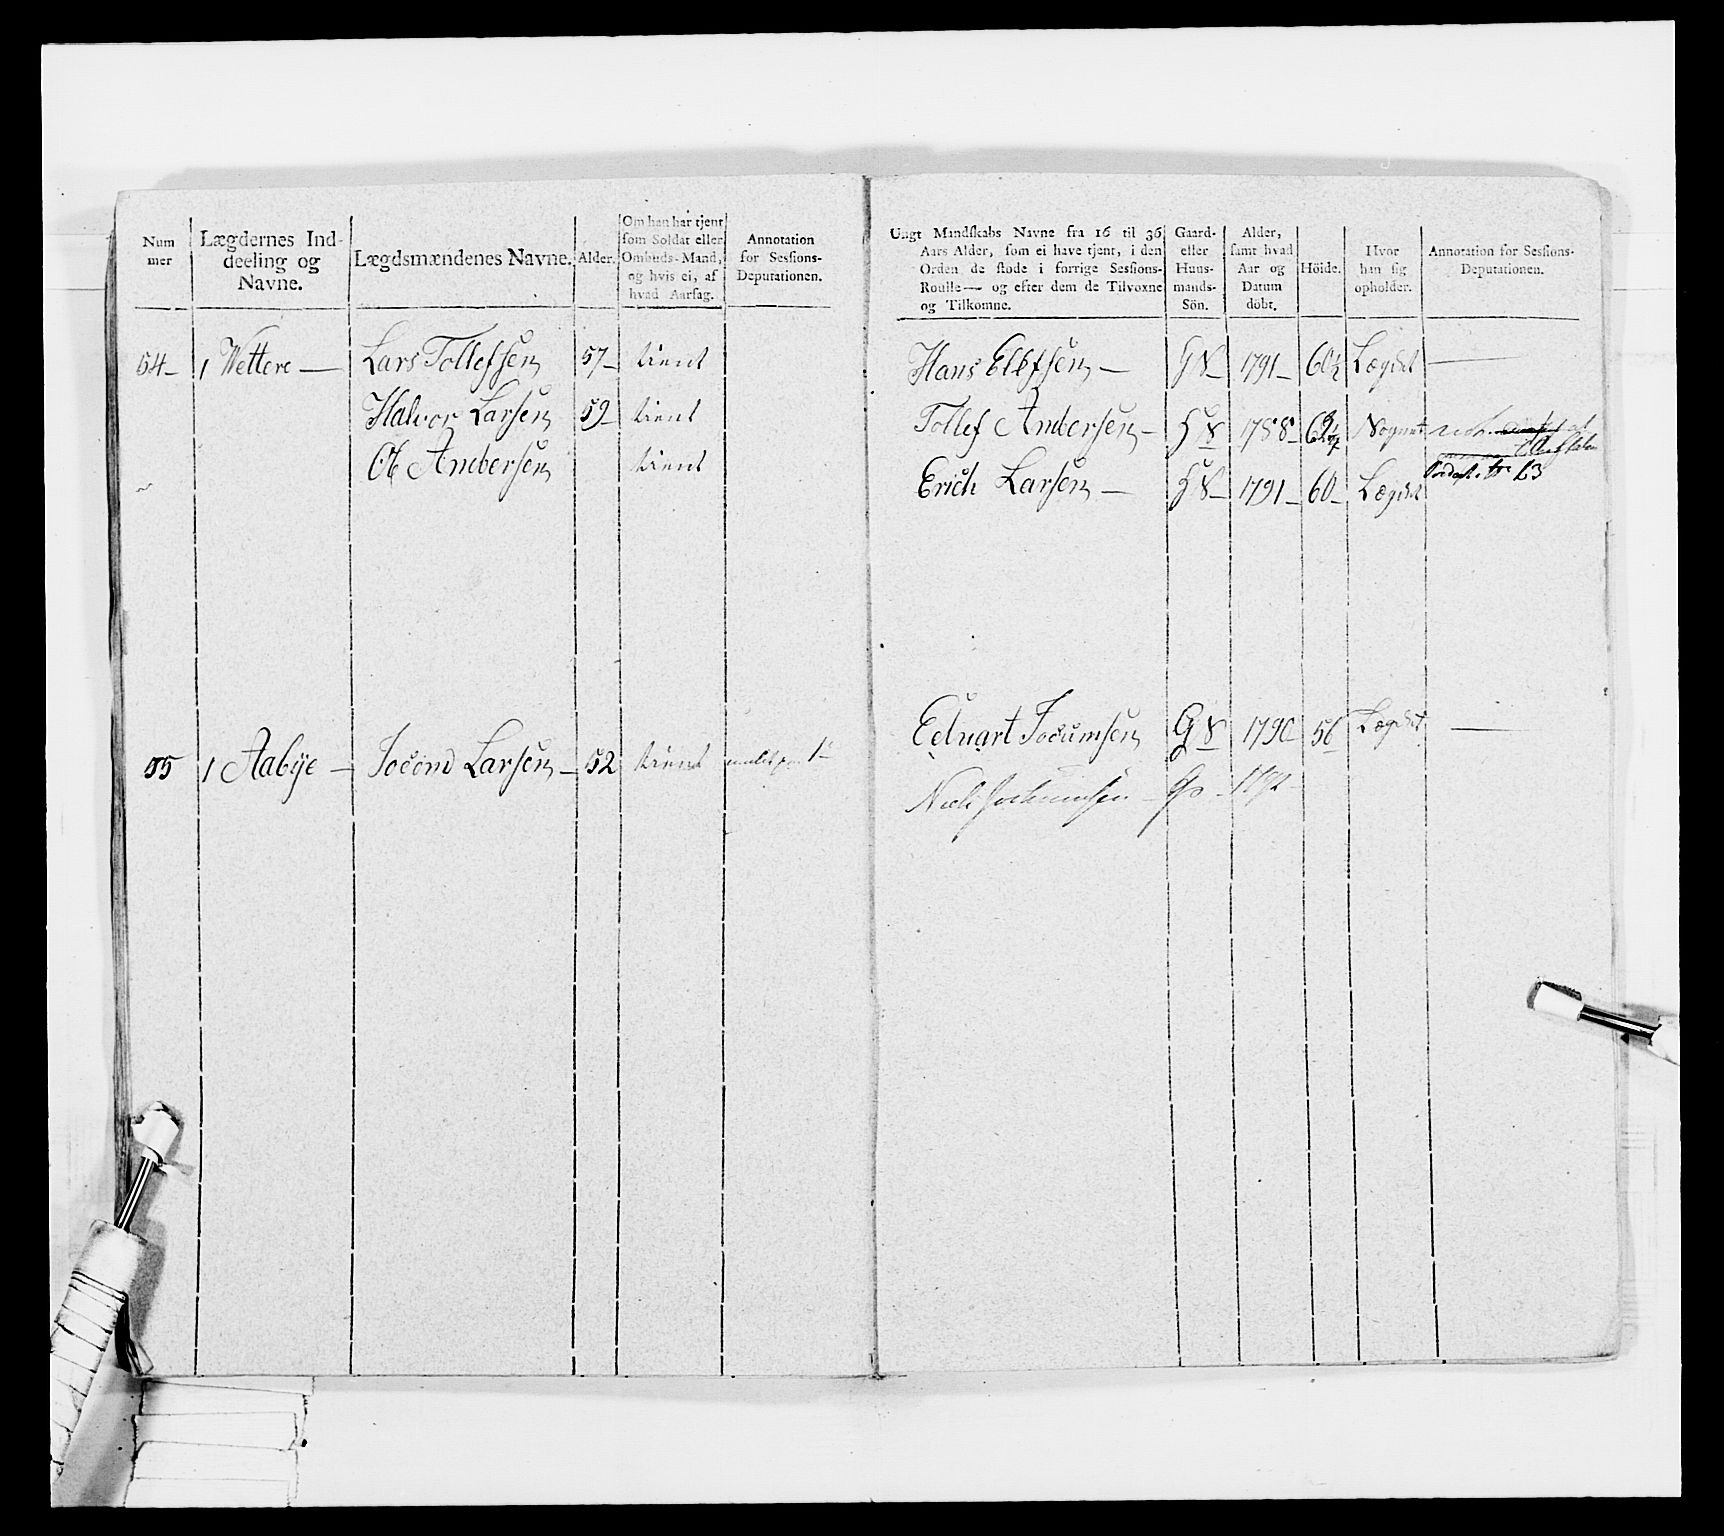 Num
mer
Lægdernes Ind-
deeling og
Navne.
Lægdsmændenes Navne.
Alder.
Om han har tjent
som Soldat eller
Ombuds-Mand,
og hvis ei, af
hvad Aarsag.
Annotation
for Sessions-
Deputationen.
54- 1 Wettere — Lars Tollefsen 57- tient
Halvor Larsen 59- tient
Ole Andersen tient
55 1 Aabÿe — Larsen - 52 tient
Ungt Mandskabs Navne fra 16 til 36
Aars Alder, som ei have tjent, i den
Orden de stode i forrige Sessions-
Roulle— og efter dem de Tilvoxne
og Tilkomne.
Gaard-
eller
Huus-
mands-
Sön.
Alder,
samt hvad
Aar og
Datum
döbt.
Höide.
Hvor
han sig
opholder.
Annotation for Sessions-
Deputationen.
Hans Ellefsen — G S - 1791 - 60½ Lægdet —
Tollef Andersen - H S 1788 - Sognet
Erich Larsen — H S - 1791 - 60 - Lægdet
Eduart Jocumsen G S 1790 56 Lægdet —
Niels Jochumsen - Gs - 1792 -